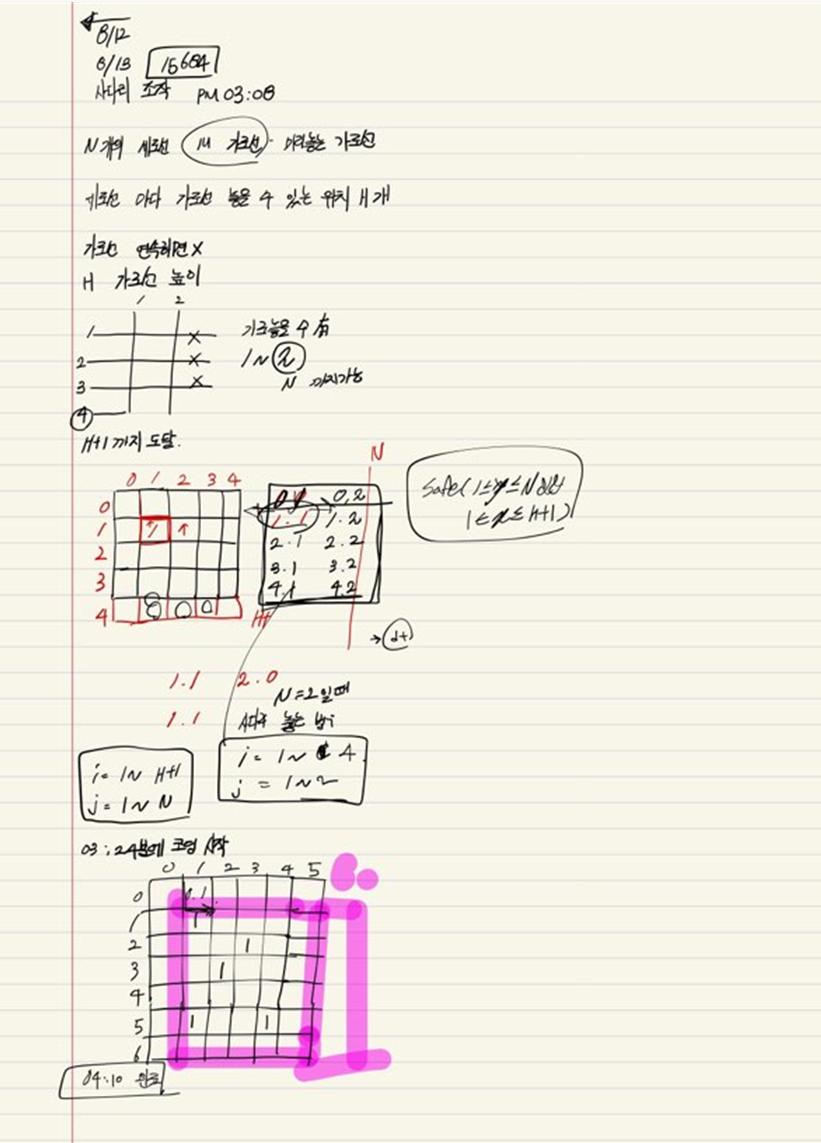 8/12
8/13 15684
사다리 조작 PM 03:08
N개의 세로선 M 가로선 미리놓는 가로선
세로선 마다 가로선 놓을 수 있는 위치 H개
가로선 연속하면 X
H 가로선 높이
1 2
1 X
2 X 1~2
3 X N 까지가능
4
H+1까지 도달.
N
0 1 2 3 4
0 0,2
1 1 ↑ 1.1 1.2
2 2.1 2.2
3 3.1 3.2
4 4.1 4.2
Safe(1≤y≤N
1≤x≤H+1)
1.1 2.0
N=2일때
1.1
i= 1~H+1
j= 1~N
i= 1~4
j = 1~2
03:24분에 코딩 시작
0 1 2 3 4 5
0 0.1
1 1
2 1
3 1
4
5 1 1
6
04:10 완료